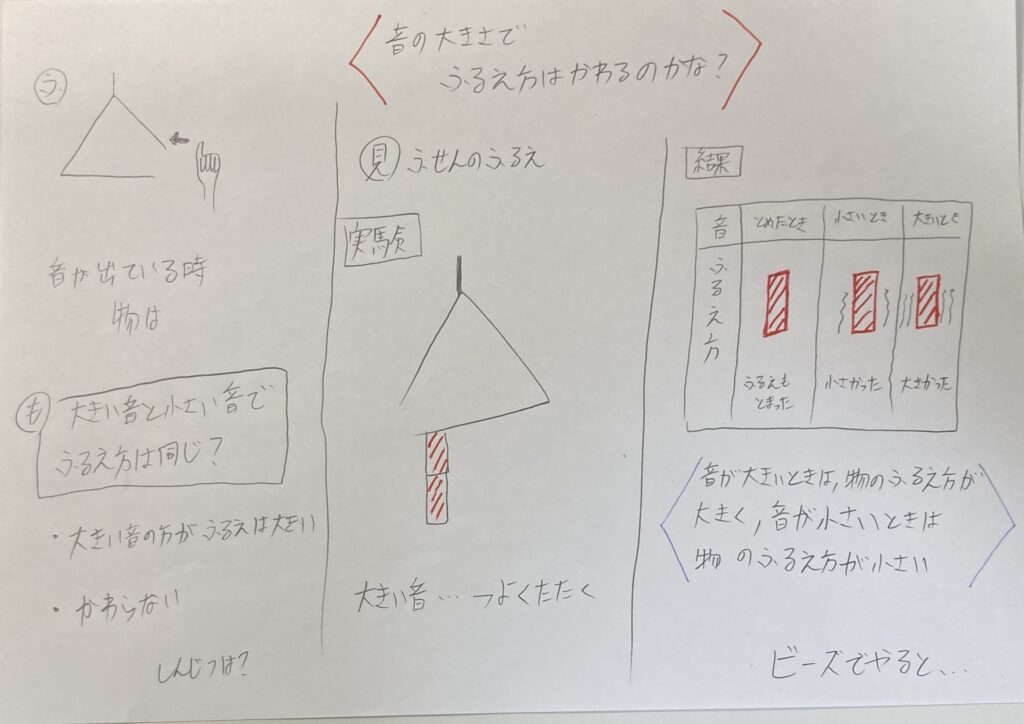 音の大きさで
ふるえ方はかわるのかな?
ふ
音が出ている時
物は
も
大きい音と小さい音で
ふるえ方は同じ?
・大きい音の方がふるえは大きい
・かわらない
しんじつは?
見 ふせんのふるえ
実験
大きい音…つよくたたく
結果
音 とめたとき 小さいとき 大きいとき
ふるえ方
ふるえも
とまった
小さかった
大きかった
音が大きいときは,物のふるえ方が
大きく,音が小さいときは
物のふるえ方が小さい
ビーズでやると…